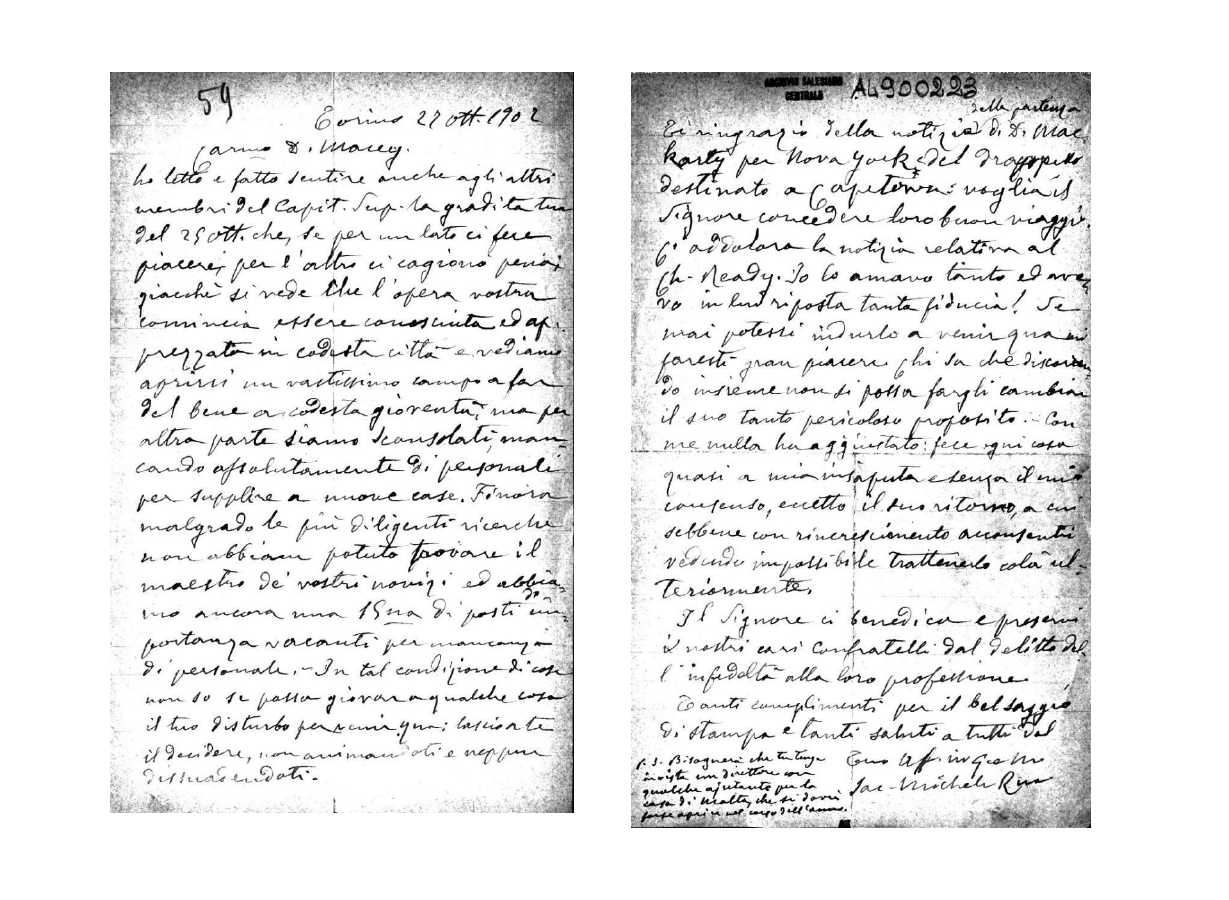 59
Torino 27 ott. 1902
Carmo D. Macey.
ho letto e fatto sentire anche agli altri
membri del Capit. Sup. la gradita tua
del 25 ott. che, se per un lato ci fece
piacere, per l'altro ci cagionò pena;
giacchè si vede che l'opera vostra
comincia essere conosciuta ed ap-
prezzata in codesta città e vediamo
aprirsi un vastissimo campo a far
del bene a codesta gioventù; ma per
altra parte siamo sconsolati, man-
cando assolutamente di personale
per supplire a nuove case. Finora
malgrado le più diligenti ricerche
non abbiam potuto trovare il
maestro de' vostri novizi ed abbia-
mo ancora una 15na di posti d'im-
portanza vacanti per mancanza
di personale. - In tal condizione di cose
non so se possa giovar a qualche cosa
il tuo disturbo per venir qua; lascio a te
il decidere, non animandoti e neppur
dissuadendoti.
ARCHIVIO SALESIANO
CENTRALE
AL900223
della partenza
Ti ringrazio della notizia di D. Mac
karty per Nova York e del drappello
destinato a Capetown: voglia il
Signore concedere loro buon viaggio.
Ci addolora la notizia relativa al
Ch. Ready. Io lo amavo tanto ed ave-
vo in lui riposta tanta fiducia! Se
mai potessi indurlo a venir qua mi
faresti gran piacere. Chi sa che discorren
do insieme non si possa fargli cambiar
il suo tanto pericoloso proposito. - Con
me nulla ha aggiustato: fece ogni cosa
quasi a mia insaputa e senza il mio
consenso, eccetto il suo ritorno, a cui
sebbene con rincrescimento acconsentii
vedendo impossibile trattenerlo colà ul-
teriormente.
Il Signore ci benedica e preservi
i nostri cari Confratelli dal delitto del
l'infedeltà alla loro professione
Tanti complimenti per il bel saggio
di stampa e tanti saluti a tutti dal
Tuo aff. in G. e M.
Sac. Michele Rua
P. S. Bisognerà che tu tenga
in vista un direttore con
qualche ajutante per la
casa di Malta, che si dovrà
forse aprire nel corso dell'anno.